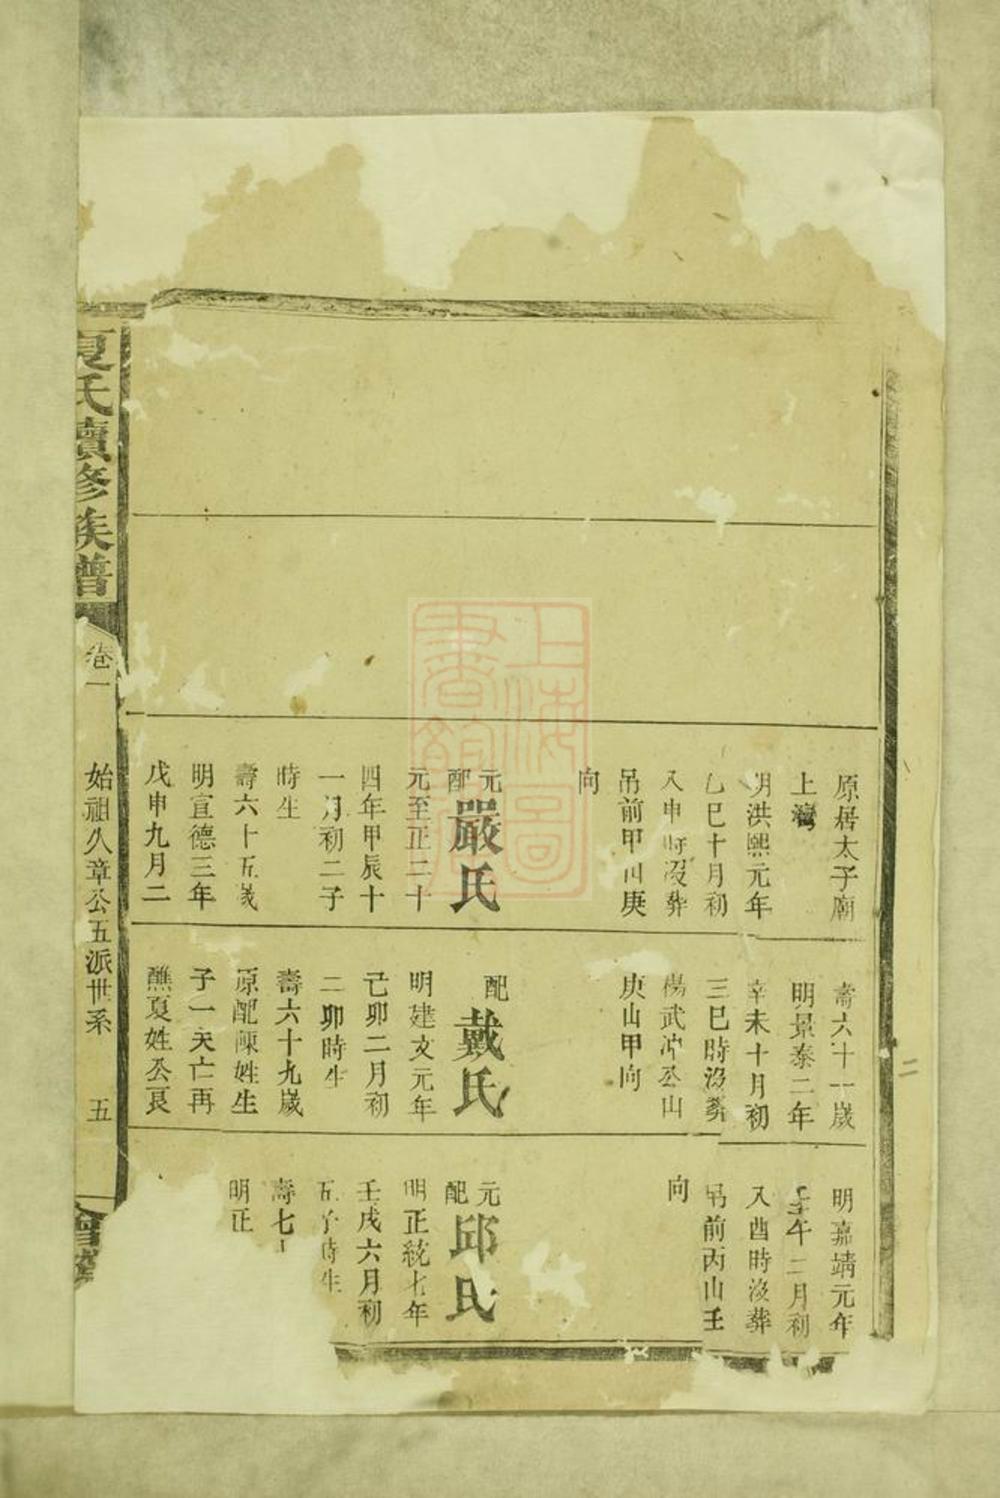 原居太子廟
上灣
明洪熙元年
乙巳十月初
入申時沒葬
吊前甲山庚
向
元配嚴氏
元至正二十
四年甲辰十
一月初二子
時生
壽六十五歲
明宣德三年
戊申九月二
壽六十一歲
明景泰二年
辛未十月初
三巳時沒葬
楊武冲公山
庚山甲向
配戴氏
明建文元年
己卯二月初
二卯時生
壽六十九歲
原配陳姓生
子一夭亡再
醮夏姓公艮
明嘉靖元年
壬午二月初
入酉時沒葬
吊前丙山壬
向
元配邱氏
明正統七年
壬戌六月初
五子時生
壽七
明正
夏氏續修族譜
卷一
始祖久章公五派世系
五
會
上海圖書館藏